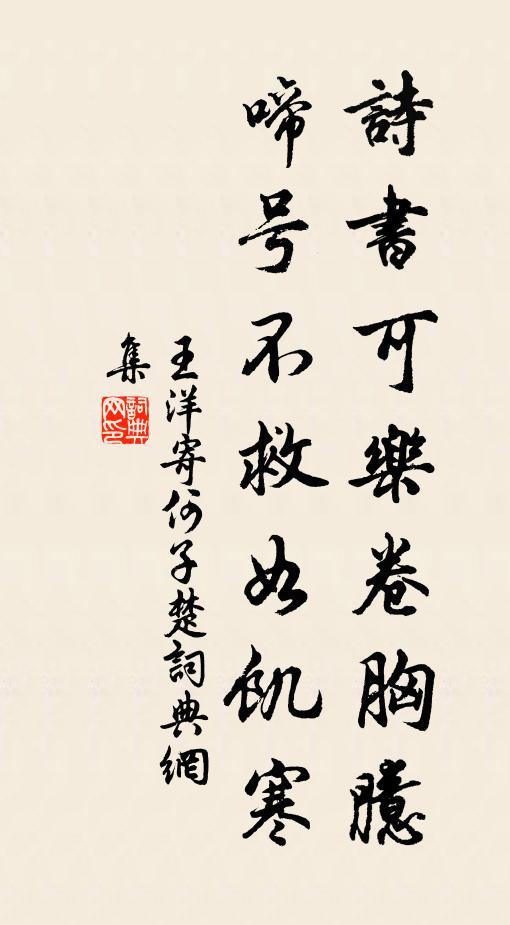 詩書可樂卷胸臆
啼号不救如飢寒
王洋寄何子楚詞典網
集
詞典網印